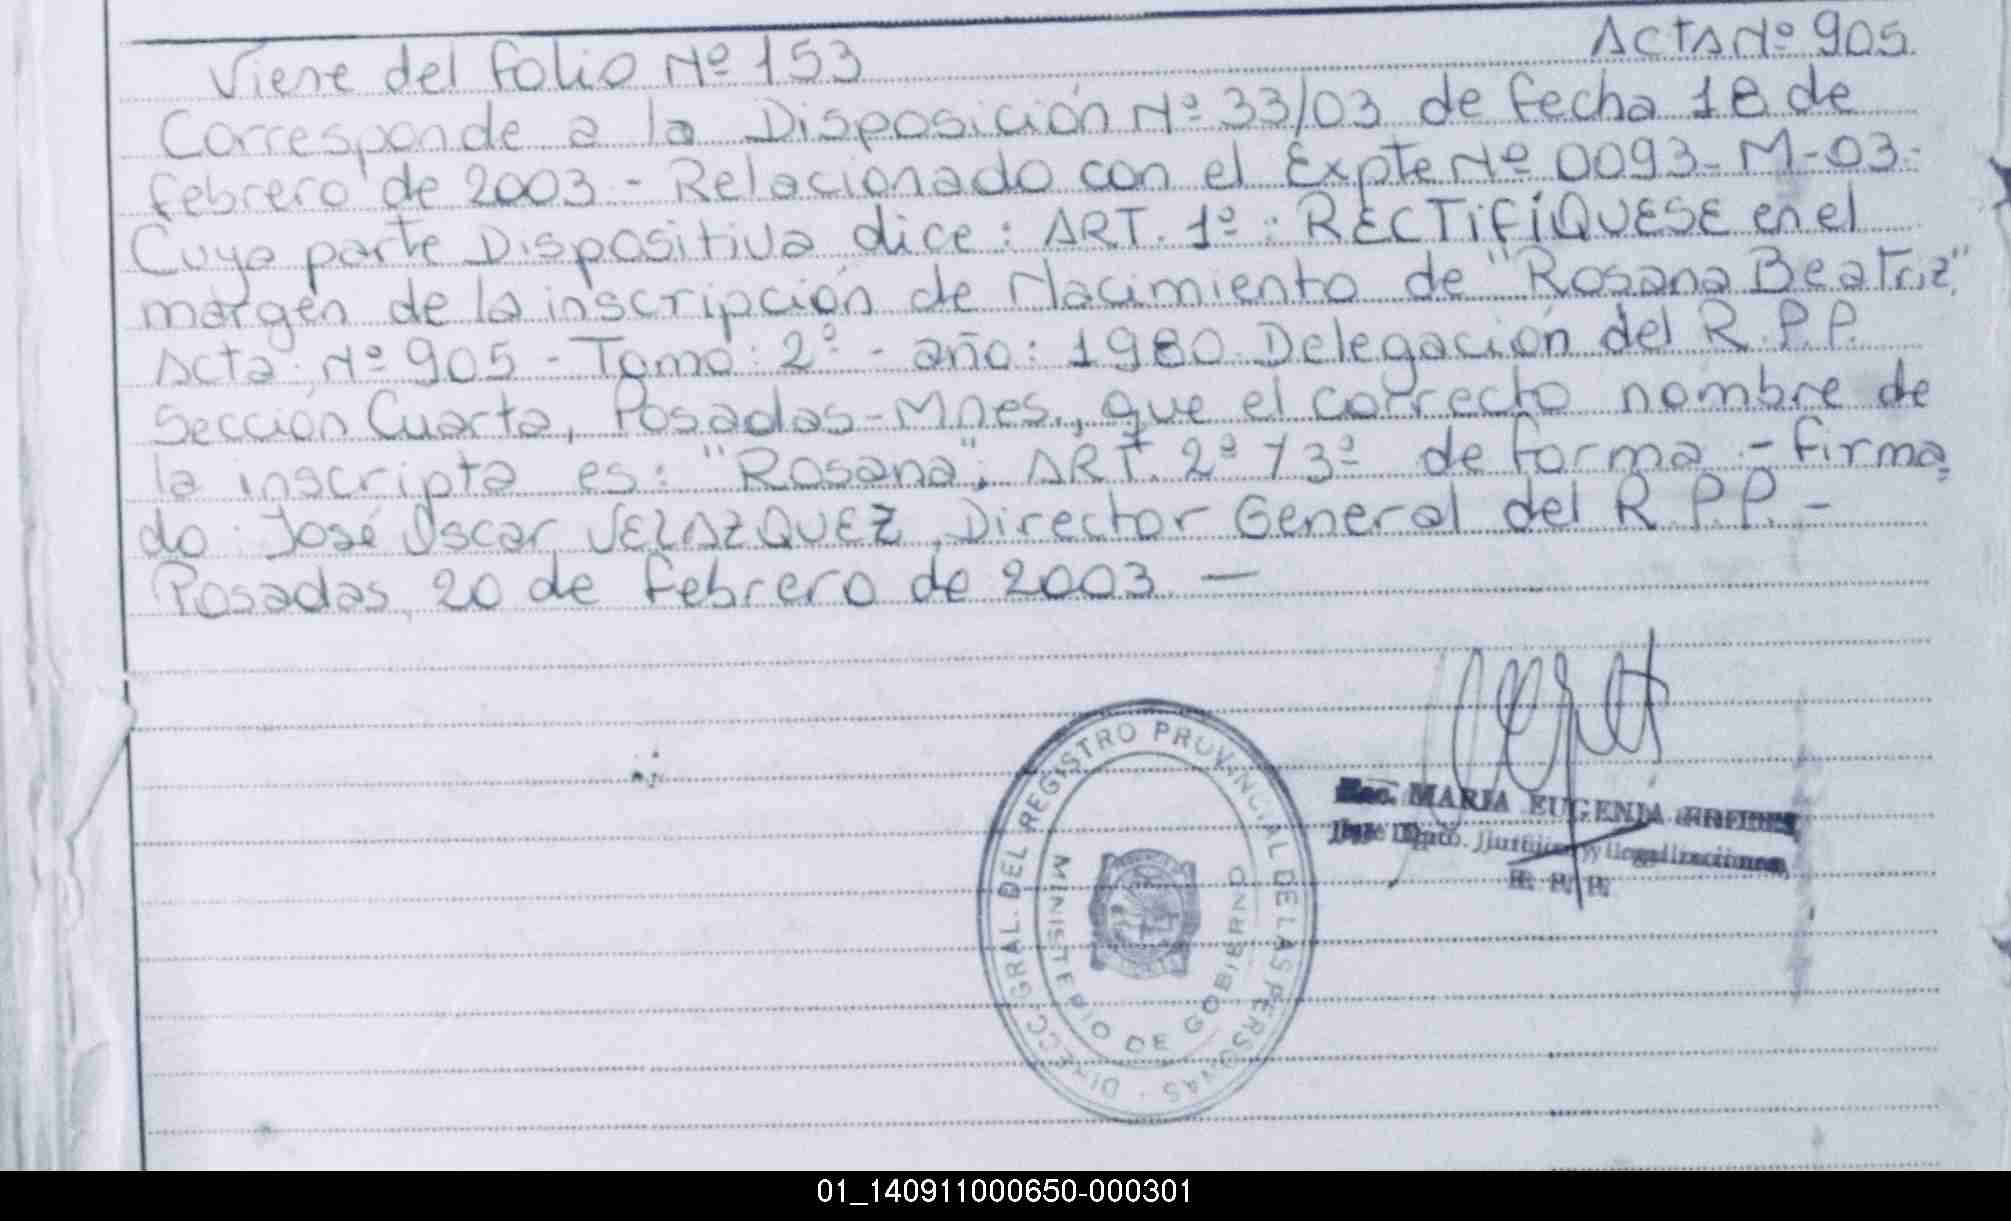 Acta Nº 905
Viene del folio Nº 153
Corresponde a la Disposición Nº 33/03 de fecha 18 de
febrero de 2003 - Relacionado con el Expte Nº 0093-M-03-
Cuya parte Dispositiva dice: ART. 1º: RECTIFÍQUESE en el
margen de la inscripción de Nacimiento de "Rosana Beatriz"
Acta Nº 905 - Tomo: 2º - año: 1980. Delegación del R.P.P.
Sección Cuarta, Posadas-Mnes., que el correcto nombre de
la inscripta es: "Rosana"; ART. 2º y 3º de forma - firma
do José Oscar VELAZQUEZ, Director General del R.P.P. -
Posadas, 20 de febrero de 2003. —
DIRECC. GRAL. DEL REGISTRO PROVINCIAL DE LAS PERSONAS
MINISTERIO DE GOBIERNO
MARIA EUGENIA
Jefe Dpto. y Legalizaciones
R. P. P.
01_140911000650-000301